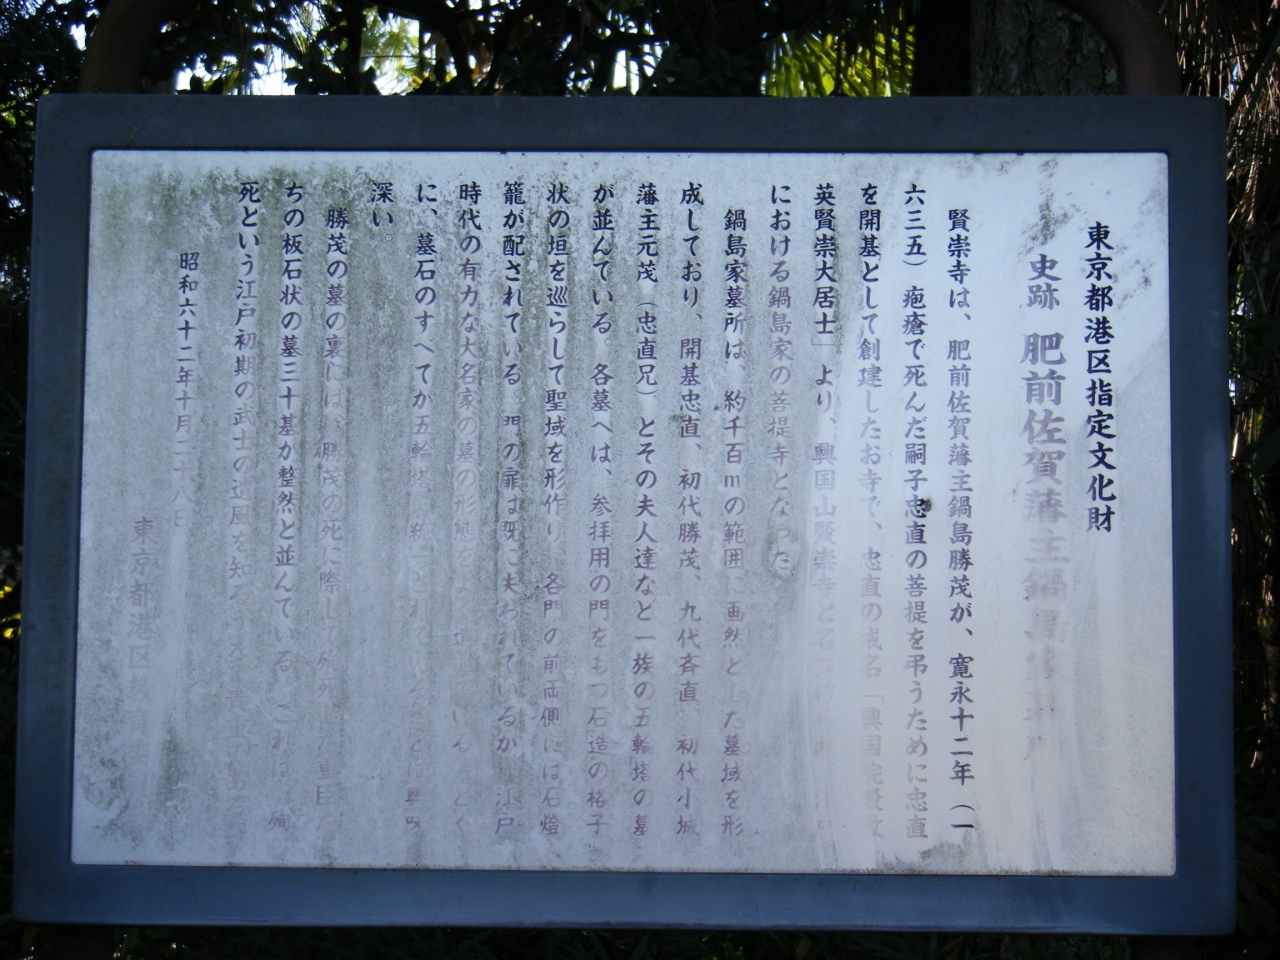 東京都港区指定文化財
史跡 肥前佐賀藩主鍋島家墓所
賢崇寺は、肥前佐賀藩主鍋島勝茂が、寛永十二年（一
六三五）疱瘡で死んだ嗣子忠直の菩提を弔うために忠直
を開基として創建したお寺で、忠直の戒名「興国院殿敬
英賢崇大居士」より、興国山賢崇寺と名
における鍋島家の菩提寺となった
鍋島家墓所は、約千百mの範囲に画然とした墓域を形
成しており、開基忠直、初代勝茂、九代斉直、初代小城
藩主元茂（忠直兄）とその夫人達など一族の五輪塔の墓
が並んでいる。各墓へは、参拝用の門をもつ石造の格子
状の垣を巡らして聖域を形作り、各門の前両側には石燈
籠が配されている。門の扉は既に失われているが、江戸
時代の有力な大名家の墓の形態をよく いる とく
に、墓石のすべてが五輪塔に統一されている 興味
深い。
勝茂の墓の裏には、勝茂の死に際して殉死
ちの板石状の墓三十基が整然と並んでいる。これは 殉
死という江戸初期の武士の遺風を知る 貴重である
昭和六十二年十月二十八日
東京都港区教育委